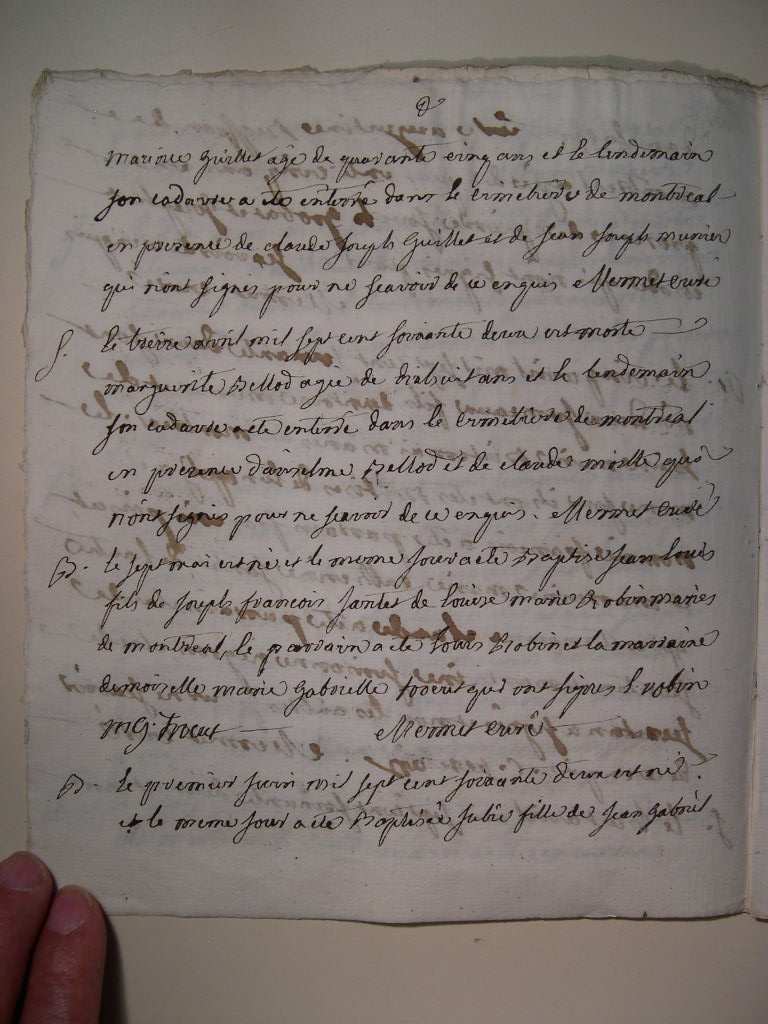 mariore Guillet agé de quarante cinq ans et le lendemain
son cadavre a eté enterré dans le cimetiere de montreal
en presence de claude Joseph Guillet et de Jean Joseph munier
qui n'ont signés pour ne scavoir de ce enquis Mermet curé
S. le treize avril mil sept cent soixante deux est morte
marguerite Bellod agée de dixhuit ans et le lendemain
son cadavre a eté enterré dans le cimetiere de montreal
en presence d'anselme Bellod et de claude moille qui
n'ont signés pour ne scavoir de ce enquis. Mermet curé
B. le sept mai est né et le meme jour a eté Baptisé Jean Louis
fils de Joseph francois et de Louise marie Robin mariés
de montreal, le parrain a eté Louis Robin et la marraine
demoiselle marie Gabrielle qui ont signés L robin
M G. Mermet curé
B. le premier juin mil sept cent soixante deux est né
et le meme jour a eté Baptisée Julie fille de Jean Gabriel